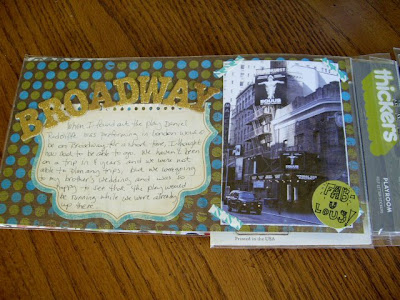 BROADWAY
When I found out the play Daniel
Radcliffe was performing in London would
be on Broadway for a short time, I thought
you have to be able to go. We haven't been
on a trip in 8 years and we were not
able to plan any trips, but we were going
to my brother's wedding and was so
happy to see that the play would
be running while we were already
up there
EQUUS
FAB-
U
LOUS!
Printed in the USA
thickers
PLAYROOM